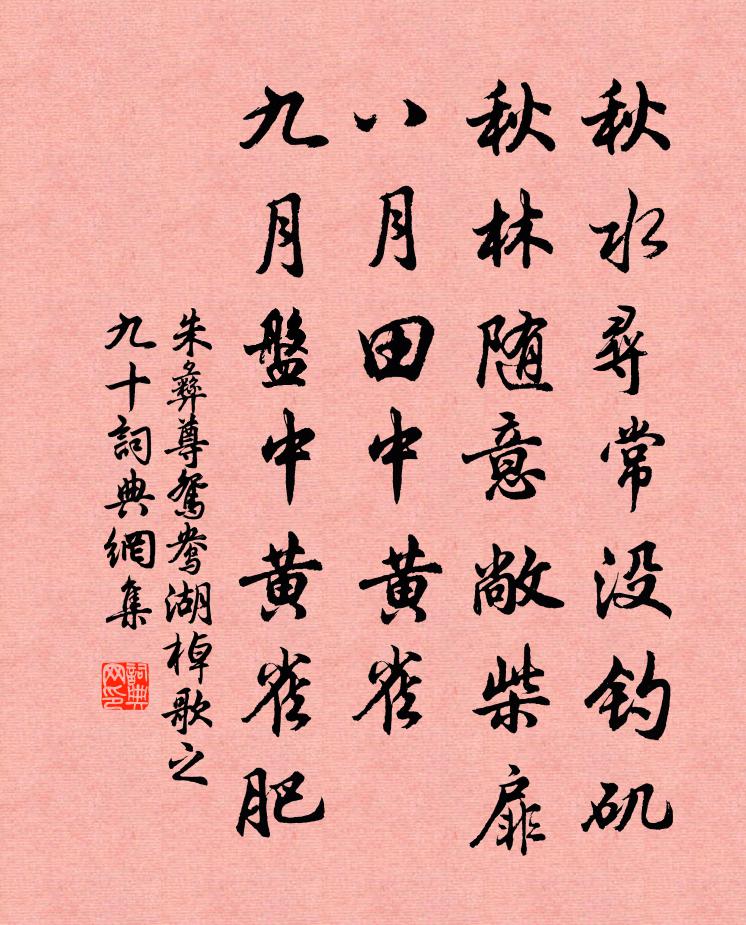 秋水尋常没钓矶
秋林随意敞柴扉
八月田中黄雀
九月盤中黄雀肥
朱彝尊鸳鸯湖棹歌之
九十詞典網集
詞典网印